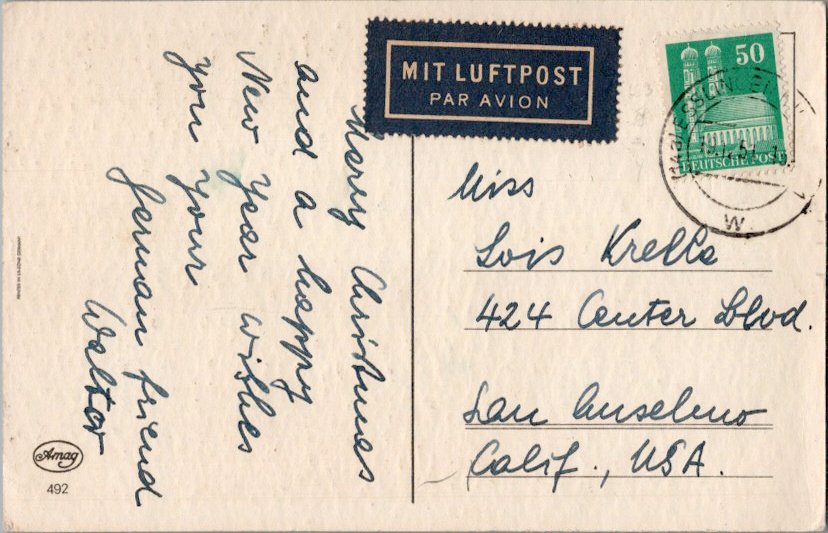 Merry Christmas
and a happy
New Year wishes
you your
German friend
Walter
MIT LUFTPOST
PAR AVION
50
DEUTSCHE POST
ESSLINGEN
W
Miss
Lois Krelle
424 Center Blvd.
San Anselmo
Calif., USA.
PRINTED IN US-ZONE GERMANY
Amag
492